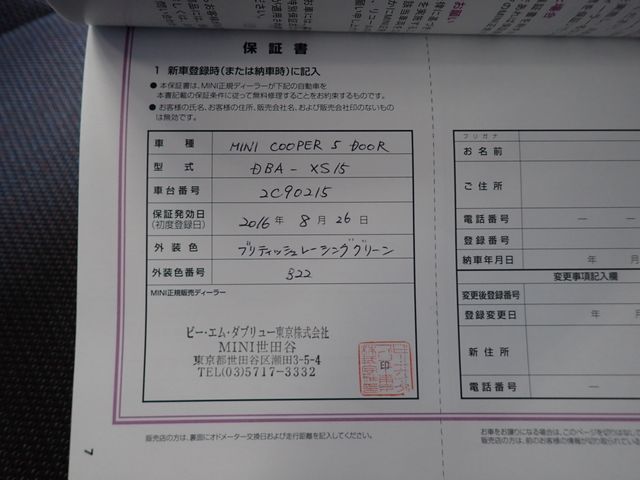 保証書
1 新車登録時(または納車時)に記入
● 本保証書は、MINI正規ディーラーが下記の自動車を
本書記載の保証条件に従って無料修理することをお約束するものです。
● お客様の氏名、お客様の住所、販売会社名、および販売会社印のないもの
は無効です。
車種 MINI COOPER 5 DOOR
型式 DBA - XS15
車台番号 2C90215
保証発効日 2016 年 8 月 26 日
(初度登録日)
外装色 ブリティッシュレーシンググリーン
外装色番号 B22
MINI正規販売ディーラー
ビー・エム・ダブリュー東京株式会社
MINI世田谷
東京都世田谷区瀬田3-5-4
TEL(03)5717-3332
印
販売店の方は、裏面にオドメーター交換日および走行距離を記入してください。
7
お願い
フリガナ
お名前
ご住所
電話番号 — —
登録番号
納車年月日 年 月
変更事項記入欄
変更後登録番号
登録変更日 年 月
新住所
電話番号 —
お車をお譲りになる場合は、このページを切りはなして
販売店の方は、前のお客様の情報が切り取られている